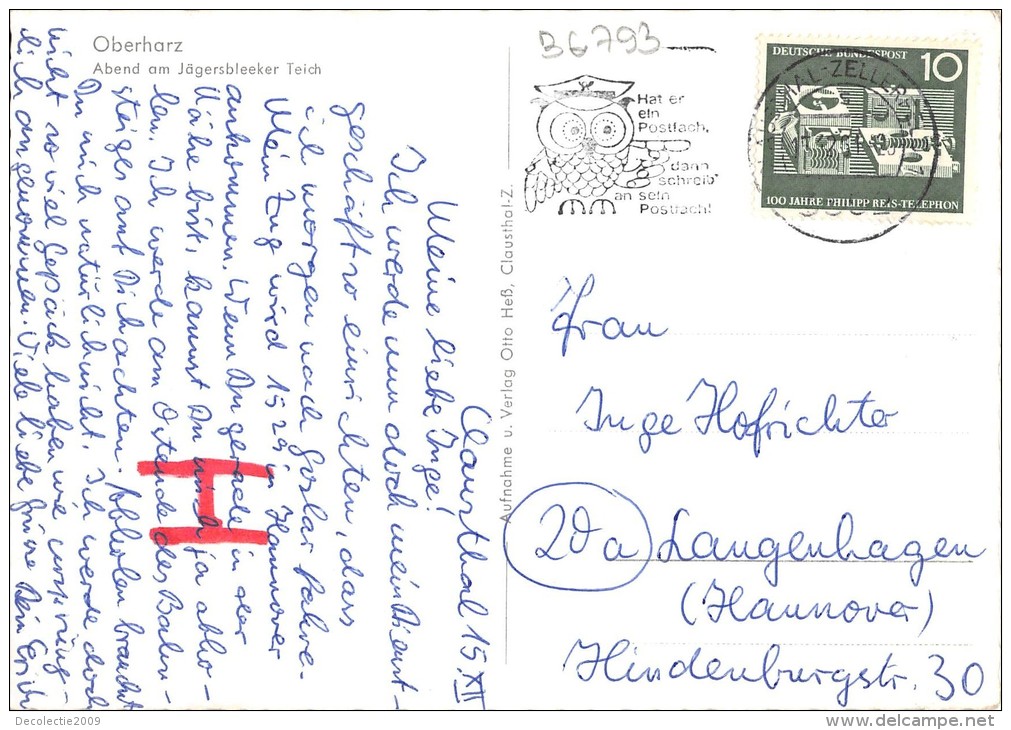 Oberharz
Abend am Jägersbleeker Teich
B6793
Hat er
ein
Postfach,
dann
schreib'
an sein
Postfach!
DEUTSCHE BUNDESPOST
10
100 JAHRE PHILIPP REIS-TELEPHON
Aufnahme u. Verlag Otto Heß, Clausthal-Z.
Clausthal 15. XII
Meine liebe Inge!
Ich werde nun doch mein Dienst-
geschäft so einrichten, dass
ich morgen nach Goslar fahre.
Mein Zug wird 15 29 in Hannover
ankommen. Wenn Du gerade in der
Nähe bist, kannst Du mich ja abho-
len. Ich werde am Ostende des Bahn-
steiges auf Dich achten. Abholen brauchst
Du mich natürlich nicht. Ich werde doch
nicht so viel Gepäck haben wie ursprüng-
lich angenommen. Viele liebe Grüße Dein Erich
H
Frau
Inge Hofrichter
20a Langenhagen
(Hannover)
Hindenburgstr. 30
Decolectie2009
www.delcampe.net